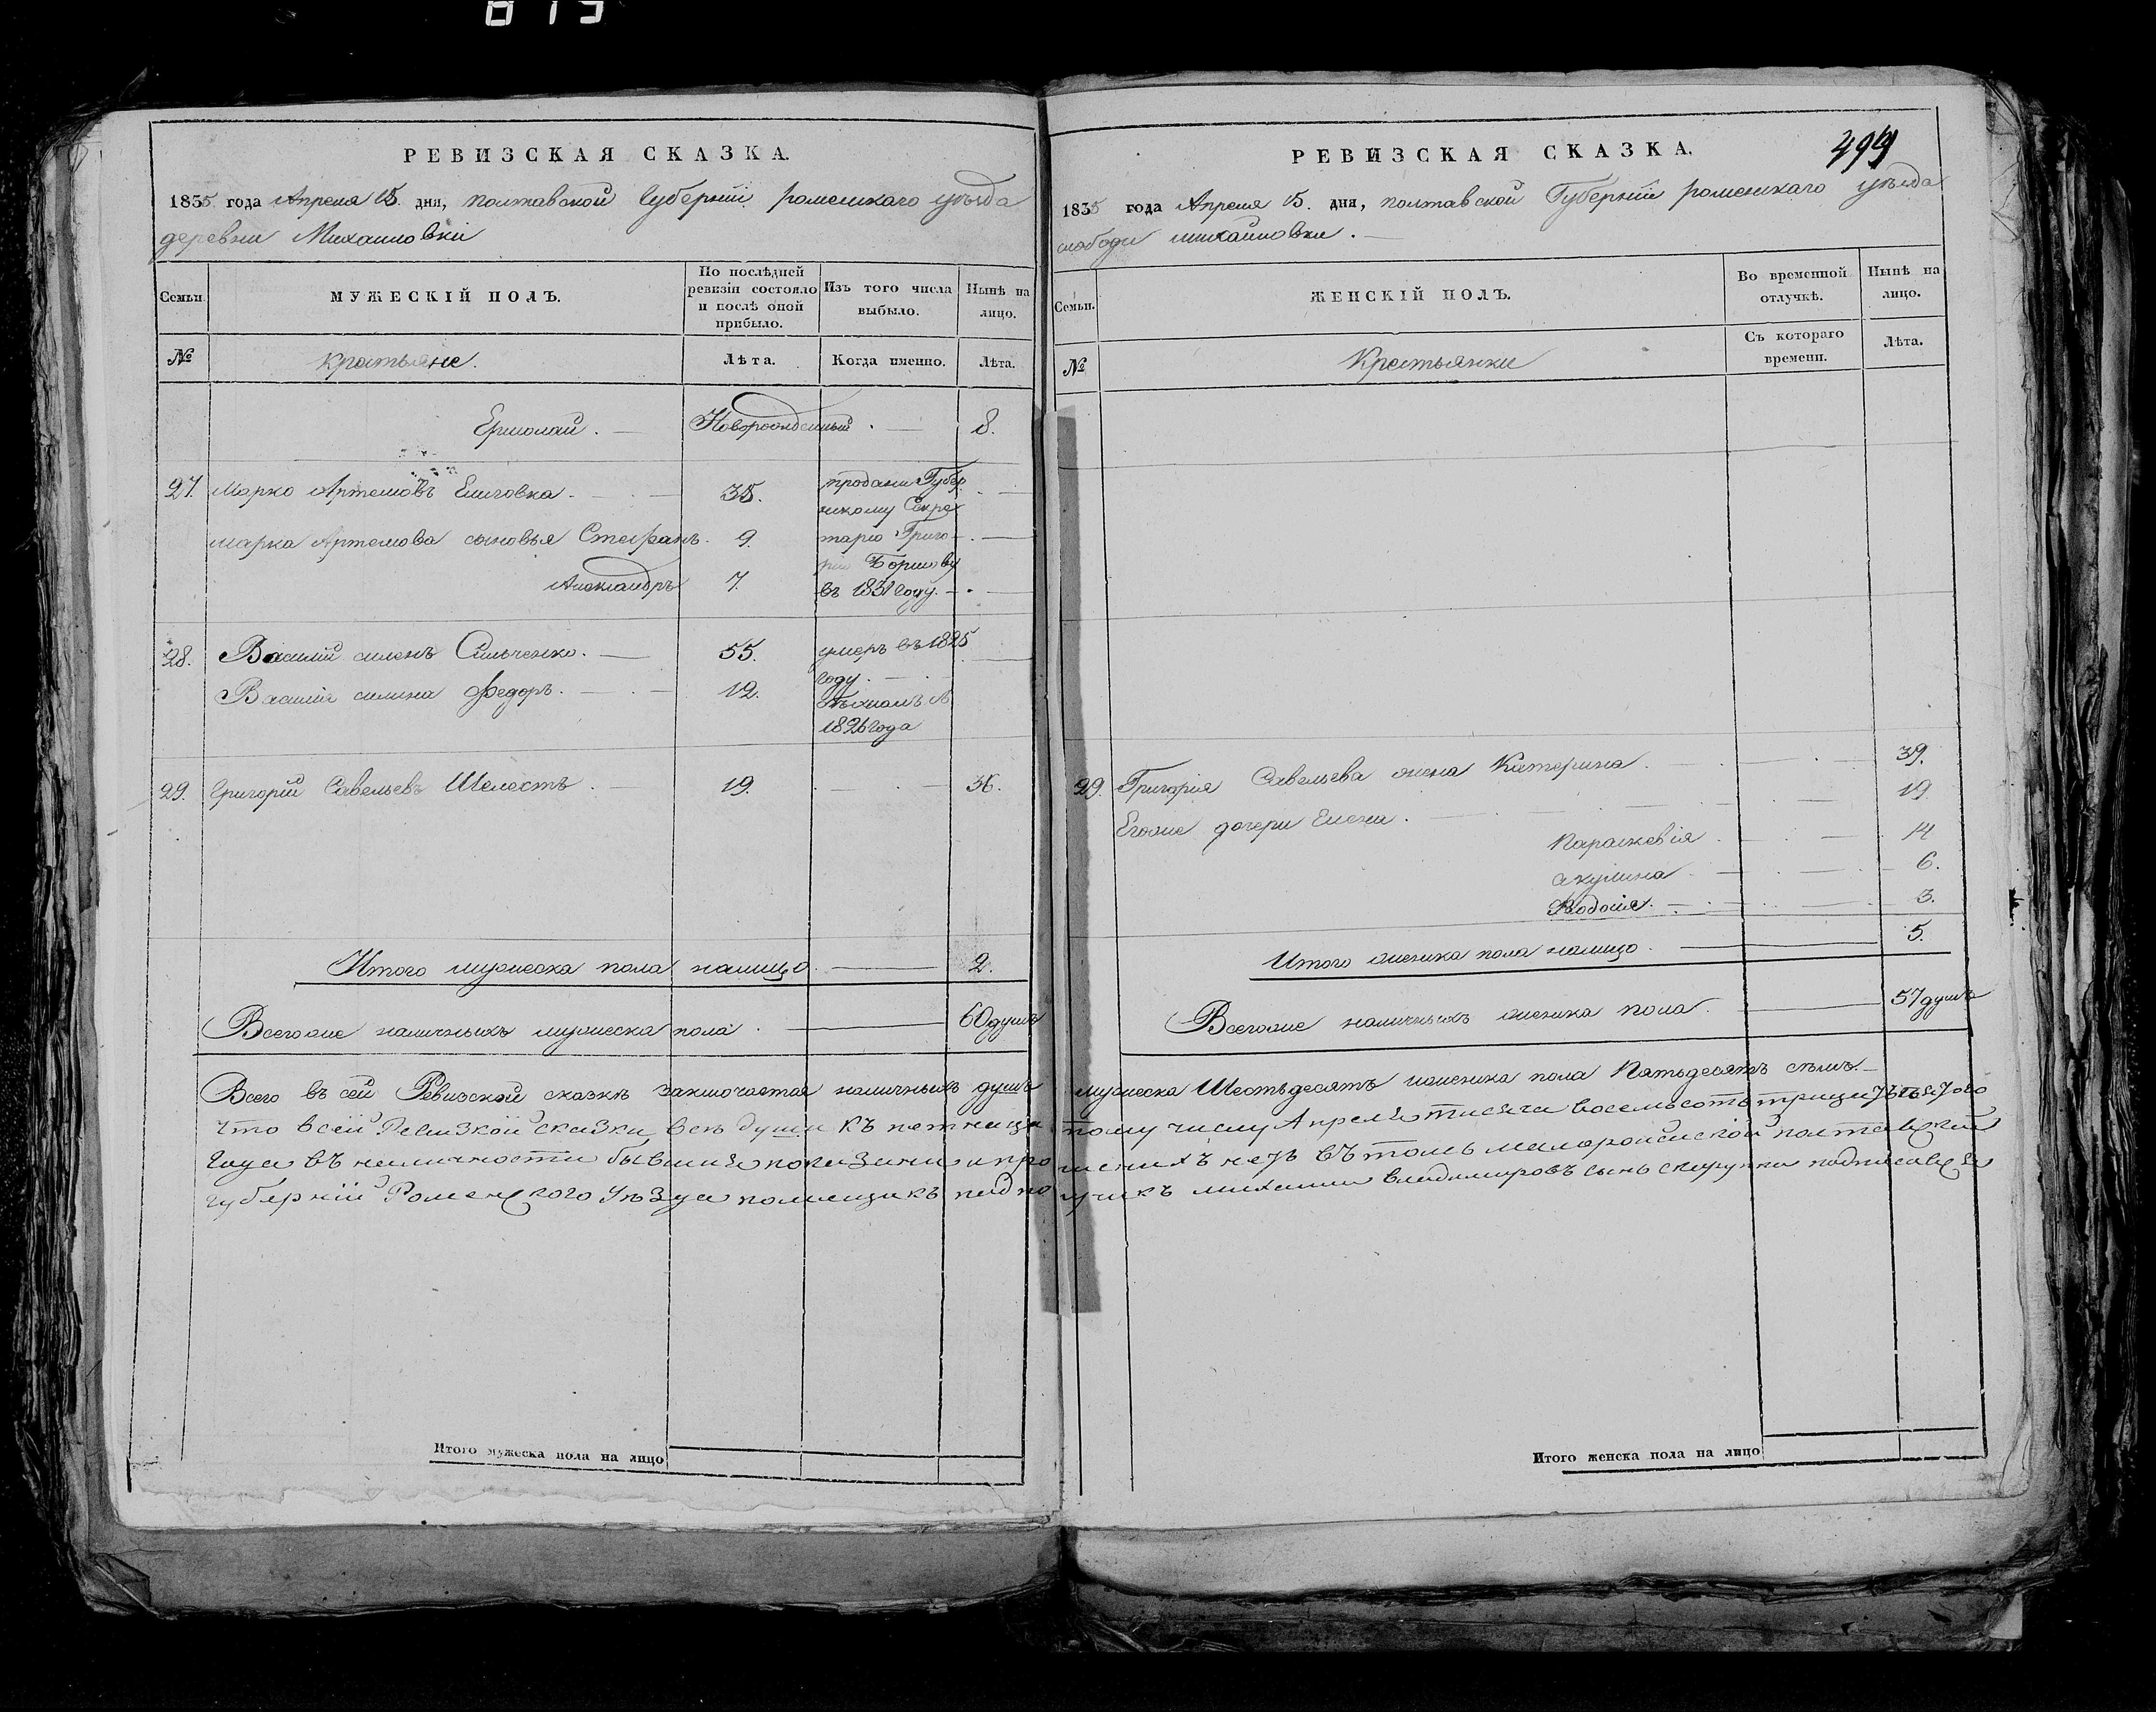 815
РЕВИЗСКАЯ СКАЗКА.
1835 года Апреля 15. дня, полтавской Губерніи роменскаго уѣзда
деревни Михаиловки
Семьи.
МУЖЕСКІЙ ПОЛЪ.
По послѣдней ревизіи состояло и послѣ оной прибыло.
Изъ того числа выбыло.
Нынѣ на лицо.
№
крестьяне.
Лѣта.
Когда именно.
Лѣта.
Ермолай. Новорожденный. 8.
27. Марко Артемовъ 35. проданы Губер
нскому Секре
марка Артемова сыновья Стефанъ. 9. тарю Григо
рію
Александръ 7. въ 1831 году.
28. Василій силенъ Сильченко. 55. умеръ въ 1825
году.
Василія силина Федоръ. 12.
1826 года
29. Григорій Савельевъ Шелестъ 19. 36.
Итого мужеска пола налицо. 2.
Всегоже наличныхъ мужеска пола. 60 душъ
РЕВИЗСКАЯ СКАЗКА.
499
1835 года Апреля 15. дня, полтавской Губерніи роменскаго уѣзда
слободы михаиловки.
Семьи.
ЖЕНСКІЙ ПОЛЪ.
Во временной отлучкѣ.
Нынѣ на лицо.
№
Крестьянки
Съ котораго времени.
Лѣта.
29. Григорія Савельева жена Катерина. 39.
Егоже дочери Елена. 19.
Параскевія 14
акулина 6.
Ѳодосия. 3.
Итого женска пола налицо. 5.
Всегоже наличныхъ женска пола. 57 душъ
Всего въ сей Ревизской сказкѣ заключается наличныхъ душъ мужеска Шестьдесятъ иженска пола Пятьдесятъ сѣмъ.
что всей Ревизкой сказки всѣ души къ петнацатому числу Апреля тисяча восемьсотъ трицать
Года въ наличности бывшия показани ипро нетъ втомъ малороссиской полтавской
губерній Роменского Уѣзда помещикъ подпоручикъ михаила владимировъ сынъ подписавсяя
Итого мужеска пола на лицо
Итого женска пола на лицо